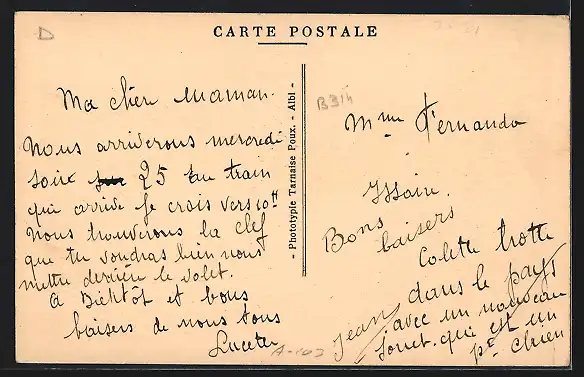 D
CARTE POSTALE
Ma chère maman.
Nous arriverons mercredi
soir 25 au train
qui arrive je crois vers 10H
nous trouverons la clef
que tu voudras bien nous
mettre derrière le volet.
A Bientôt et bons
baisers de nous tous
Lucette
A-103
- Phototypie Tarnaise Poux. - Albi -
B314
Mme Fernanda
Issoire.
Bons
baisers
Colette trotte
dans le pays
avec un nouveau
jouet. qui est un
pt chien
Jean